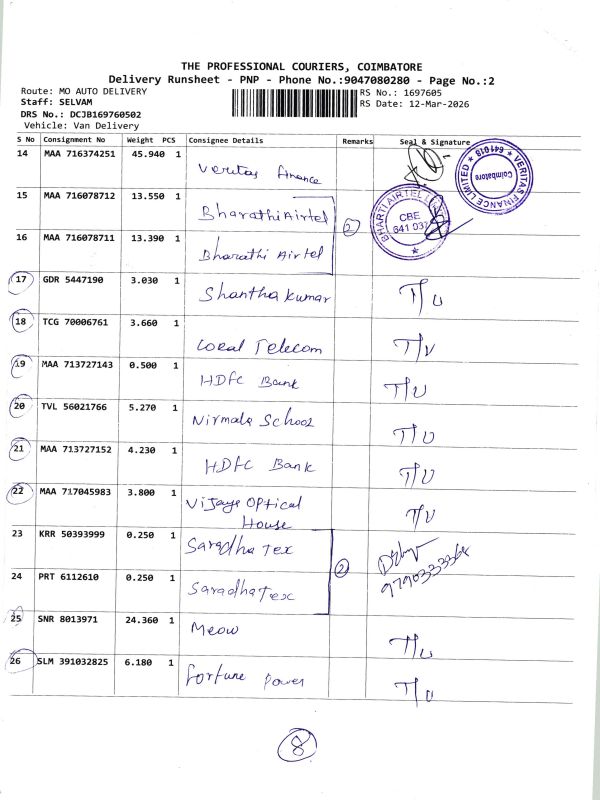 THE PROFESSIONAL COURIERS, COIMBATORE
Delivery Runsheet - PNP - Phone No.:9047080280 - Page No.:2
Route: MO AUTO DELIVERY
Staff: SELVAM
DRS No.: DCJB169760502
Vehicle: Van Delivery
RS No.: 1697605
RS Date: 12-Mar-2026
S No Consignment No Weight PCS Consignee Details Remarks Seal & Signature
14 MAA 716374251 45.940 1 Veritas finance
VERITAS FINANCE LIMITED * 641018 * Coimbatore
15 MAA 716078712 13.550 1 Bharathi Airtel 2
BHARTI AIRTEL CBE 641 037
16 MAA 716078711 13.390 1 Bharathi Airtel
17 GDR 5447190 3.030 1 Shantha kumar T/U
18 TCG 70006761 3.660 1 Local Telecom T/U
19 MAA 713727143 0.500 1 HDFC Bank T/U
20 TVL 56021766 5.270 1 Nirmala School T/U
21 MAA 713727152 4.230 1 HDFC Bank T/U
22 MAA 717045983 3.800 1 Vijaye Optical House T/U
23 KRR 50393999 0.250 1 Saradha Tex 2
24 PRT 6112610 0.250 1 Saradha Tex
25 SNR 8013971 24.360 1 Meow T/U
26 SLM 391032825 6.180 1 fortune power T/U
8